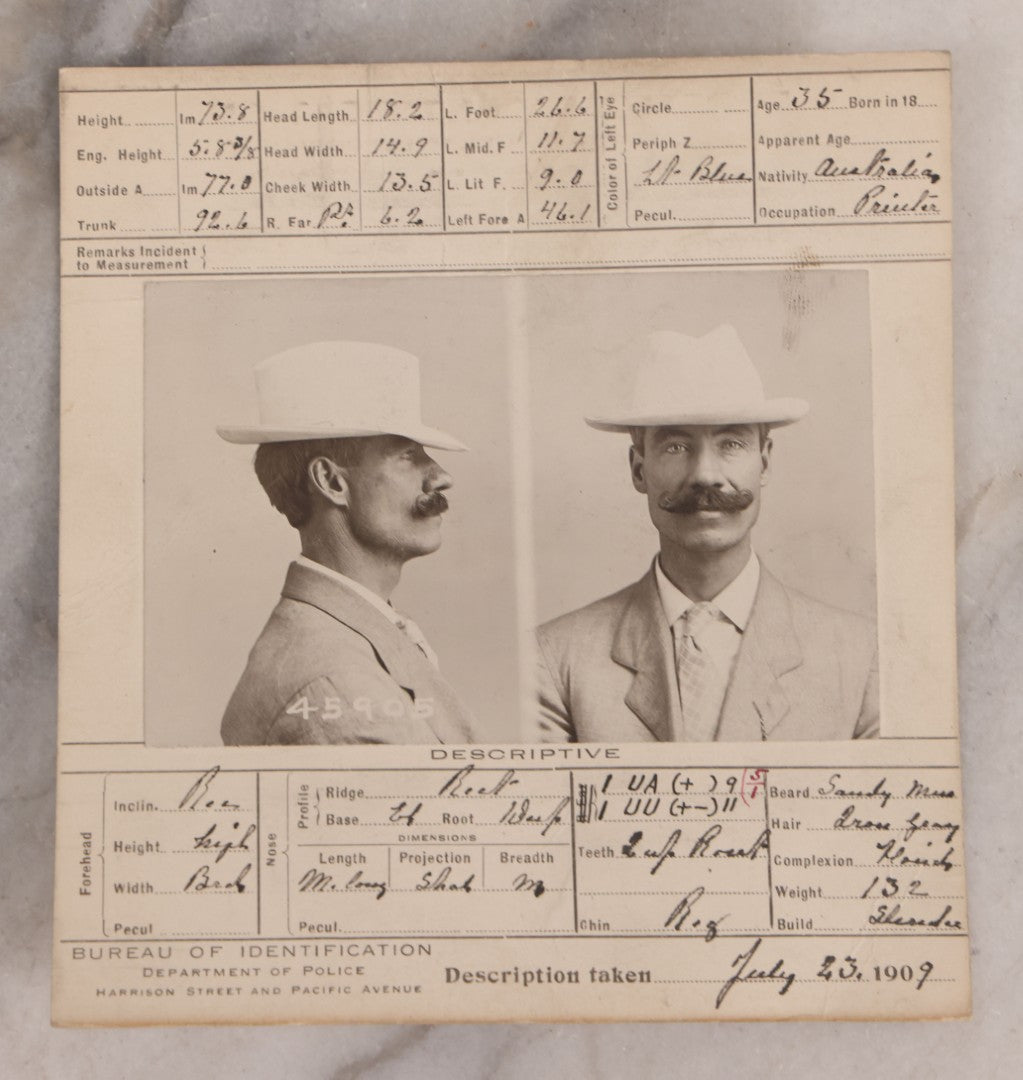 Height 1m 73.8 Head Length 18.2 L. Foot 26.6 Color of Left Eye Circle Age 35 Born in 18
Eng. Height 5.8 3/8 Head Width 14.9 L. Mid. F 11.7 Periph Z Apparent Age
Outside A 1m 77.0 Cheek Width 13.5 L. Lit F. 9.0 Lt Blue Nativity Australia
Trunk 92.6 R. Ear Rt. 6.2 Left Fore A 46.1 Pecul. Occupation Printer
Remarks Incident
to Measurement
45905
DESCRIPTIVE
Forehead Inclin. Rec Nose Profile Ridge Rect 1 UA (+ ) 9 (5/1 Beard Sandy Mus
Base Root 1 UU (+-) 11 Hair Iron Gray
Height high DIMENSIONS Teeth 2 up
Length Projection Breadth Complexion Florid
Width Brd M. long M Weight 132
Pecul Pecul. Chin Build. Slender
BUREAU OF IDENTIFICATION
DEPARTMENT OF POLICE
HARRISON STREET AND PACIFIC AVENUE
Description taken July 23. 1909